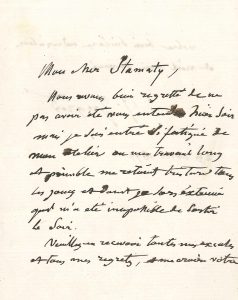 Mon cher Stamaty,
Nous avons bien regretté de ne
pas avoir été vous entendre hier soir
mais je suis rentré si fatigué de
mon atelier ou un travail long
et pénible me retient très tard tous
les jours et dont je sors exténué
qu'il m'a été impossible de sortir
le soir.
Veuillez en recevoir toutes mes excuses
et tous mes regrets, et me croire votre